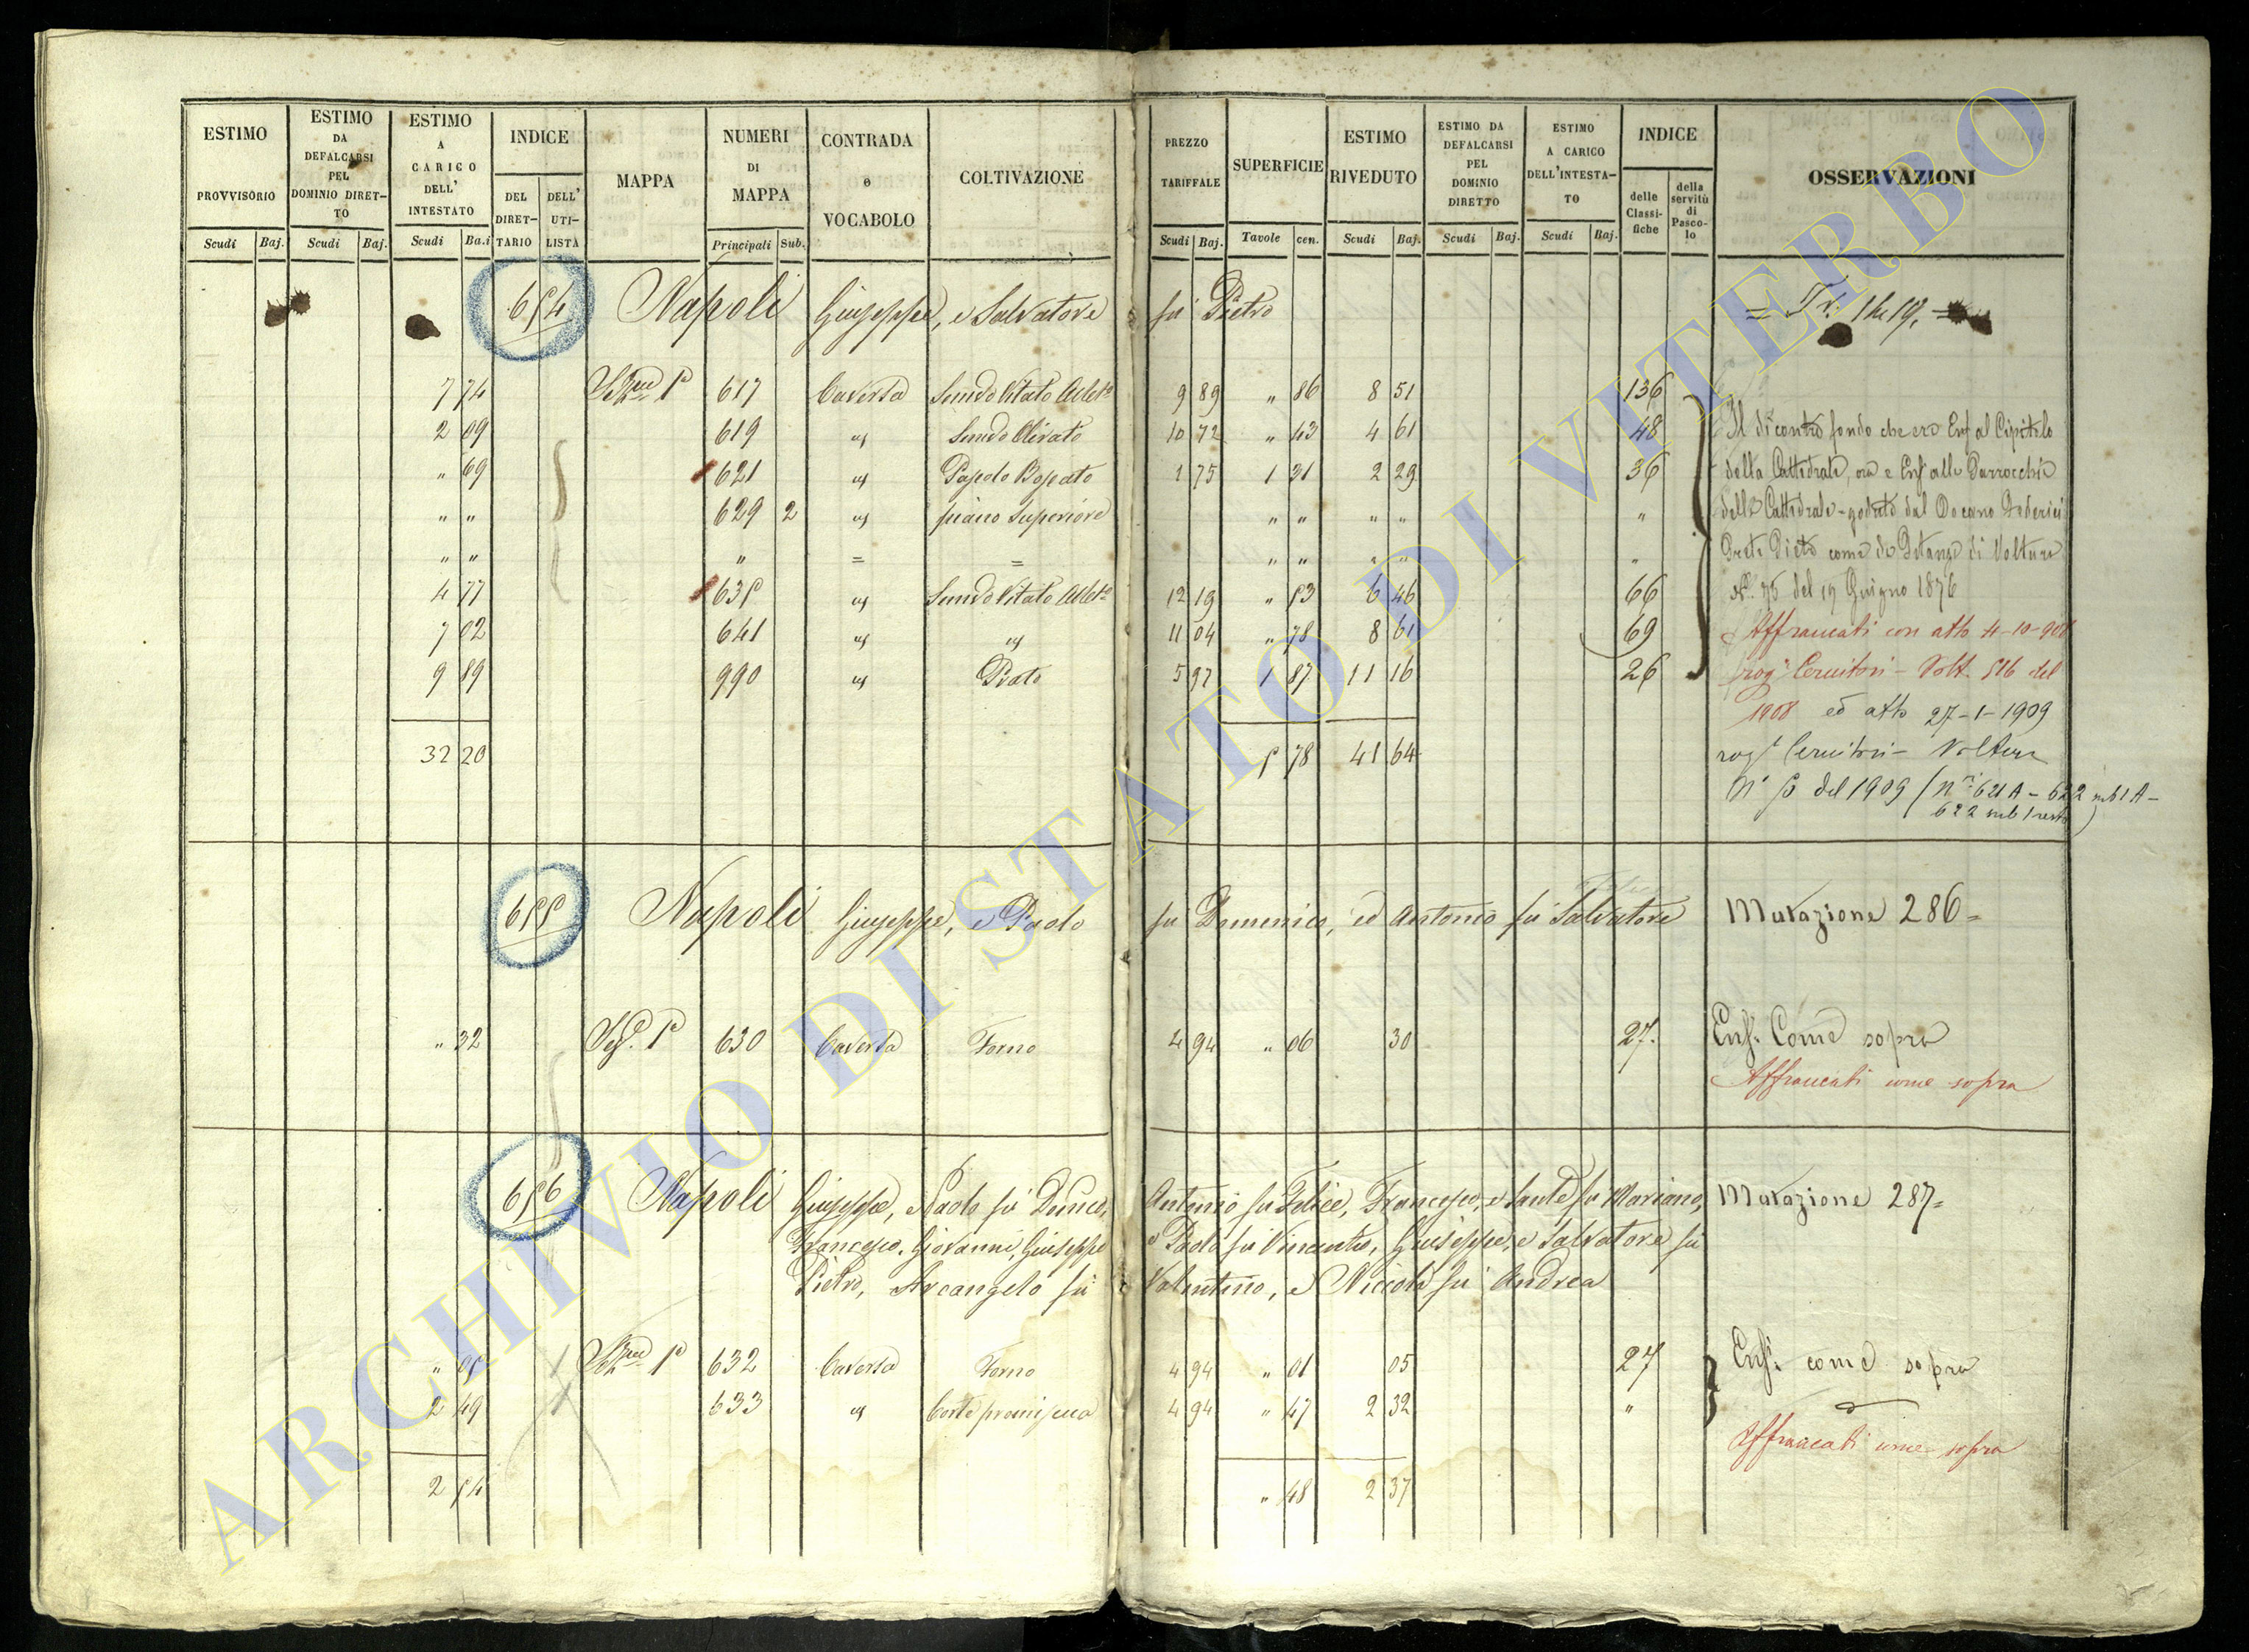 ESTIMO PROVVISORIO Scudi Baj.
ESTIMO DA DEFALCARSI PEL DOMINIO DIRET-TO Scudi Baj.
ESTIMO A CARICO DELL' INTESTATO Scudi Ba.i
INDICE DEL DIRET-TARIO DELL' UTI-LISTA
MAPPA
NUMERI DI MAPPA Principali Sub.
CONTRADA o VOCABOLO
COLTIVAZIONE
PREZZO TARIFFALE Scudi Baj.
SUPERFICIE Tavole cen.
ESTIMO RIVEDUTO Scudi Baj.
ESTIMO DA DEFALCARSI PEL DOMINIO DIRETTO Scudi Baj.
ESTIMO A CARICO DELL'INTESTA-TO Scudi Baj.
INDICE delle Classi-fiche della servitù di Pasco-lo
OSSERVAZIONI
654 Napoli Giuseppe, e Salvatore fù Pietro
7 74 617 Caversa 9 89 " 86 8 51 136
2 09 619 Olivato 10 72 " 43 4 61 48
" 69 621 Pascolo 1 75 1 31 2 29 36
" " 629 2 piano Superiore " " " " "
" " " = = " " " " "
4 77 635 12 19 " 53 6 46 66
7 02 641 11 04 " 78 8 61 69
9 89 990 Prato 5 97 1 87 11 16 26
32 20 5 78 41 64
Il dicontro fondo che era Enf al Capitolo
della Cattedrale, ora è Enf alla Parrocchia
della Cattedrale - goduto dal Decano
di Volture
N. 75 del 19 Giugno 1876
Affrancati con atto 4-10-908
rog Cernitori - Volt. 516 del
1908 ed atto 27-1-1909
rog Cernitori - Voltura
N. 5 del 1909 (n.ri 621A - 622 sub 1 A -
622 sub 1 resto)
655 Napoli Giuseppe, e Paolo fù Domenico, ed Antonio fù Salvatore Mutazione 286=
" 32 630 Caversa Forno 4 94 " 06 30 27. Enf. Come sopra
Affrancati come sopra
656 Napoli Giuseppe, e Paolo fù Dmco, Antonio fù Felice, Francesco, e Sante fù Mariano, Mutazione 287=
Francesco, Giovanni, Giuseppe e Paolo fù Vincenzo, Giuseppe, e Salvatore fù
Pietro, Arcangelo fù Valentino, e Niccola fù Andrea
" 05 632 Caversa Forno 4 94 " 01 05 27 Enf. come sopra
2 49 633 Corte promiscua 4 94 " 47 2 32 "
Affrancati come sopra
2 54 " 48 2 37
ARCHIVIO DI STATO DI VITERBO